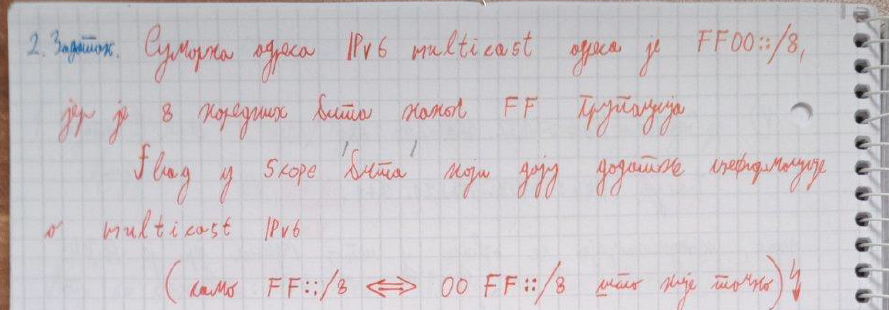 2. Задатак. Сумарна адреса IPv6 multicast адреса је FF00::/8,
јер је 8 наредних бита након FF групација
flag и scope 'бита' који дају додатне информације
о multicast IPv6
(само FF::/8 ⟺ 00FF::/8 што није тачно)